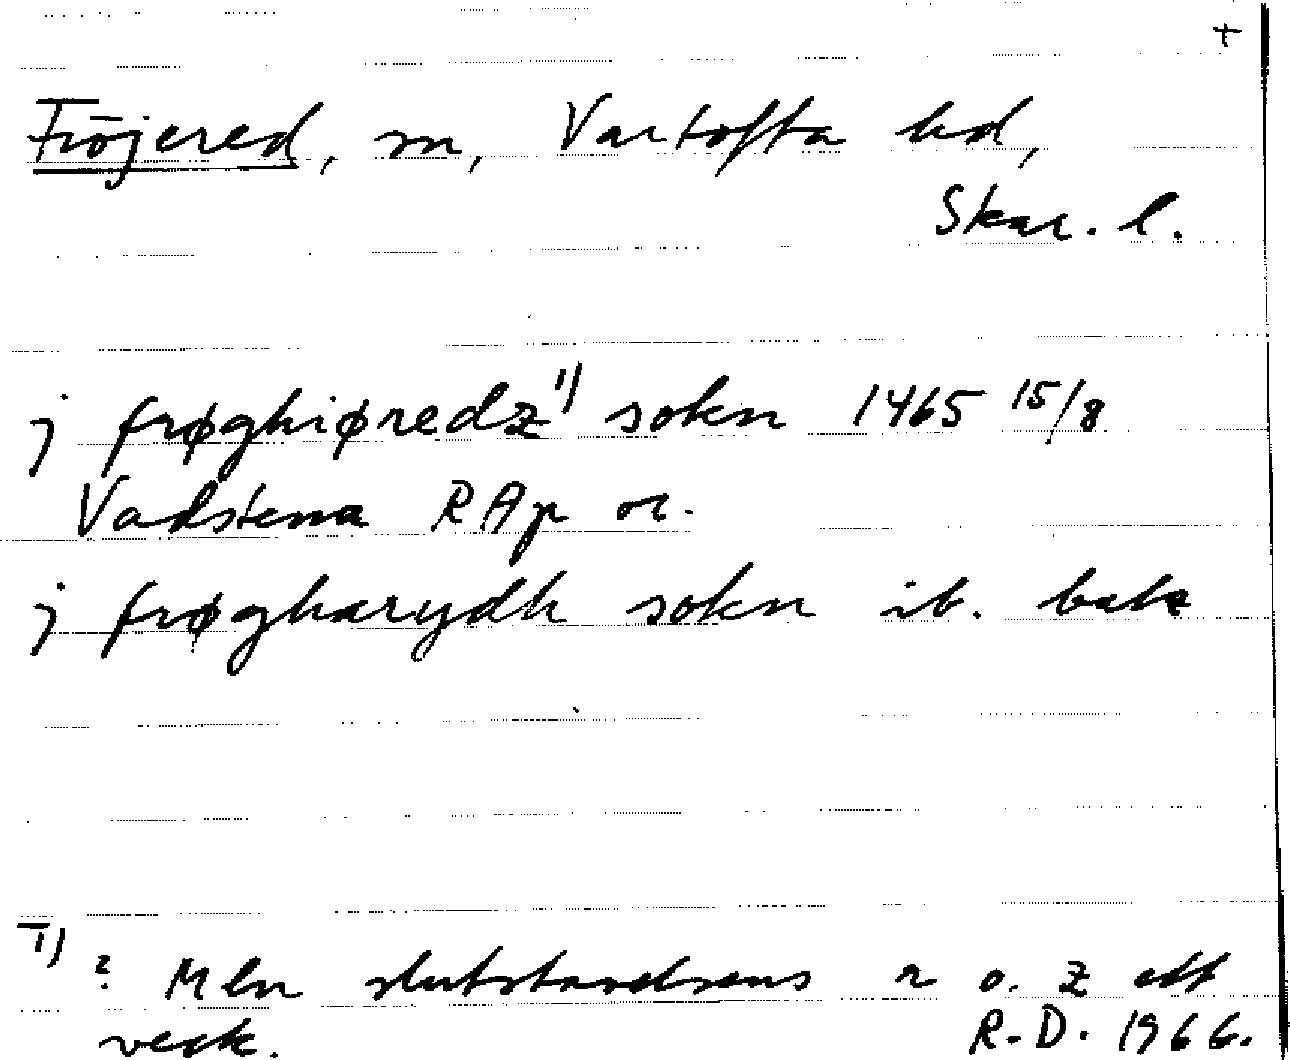 +
Fröjered, sn, Vartofta hd,
Skar. l.
j frøghiøredz 1) sokn 1465 15/8
Vadstena RAp or.
j frøgharydh sokn ib. baks
1) ? Mln slutstavelsens r o. z ett
veck. R.D. 1966.